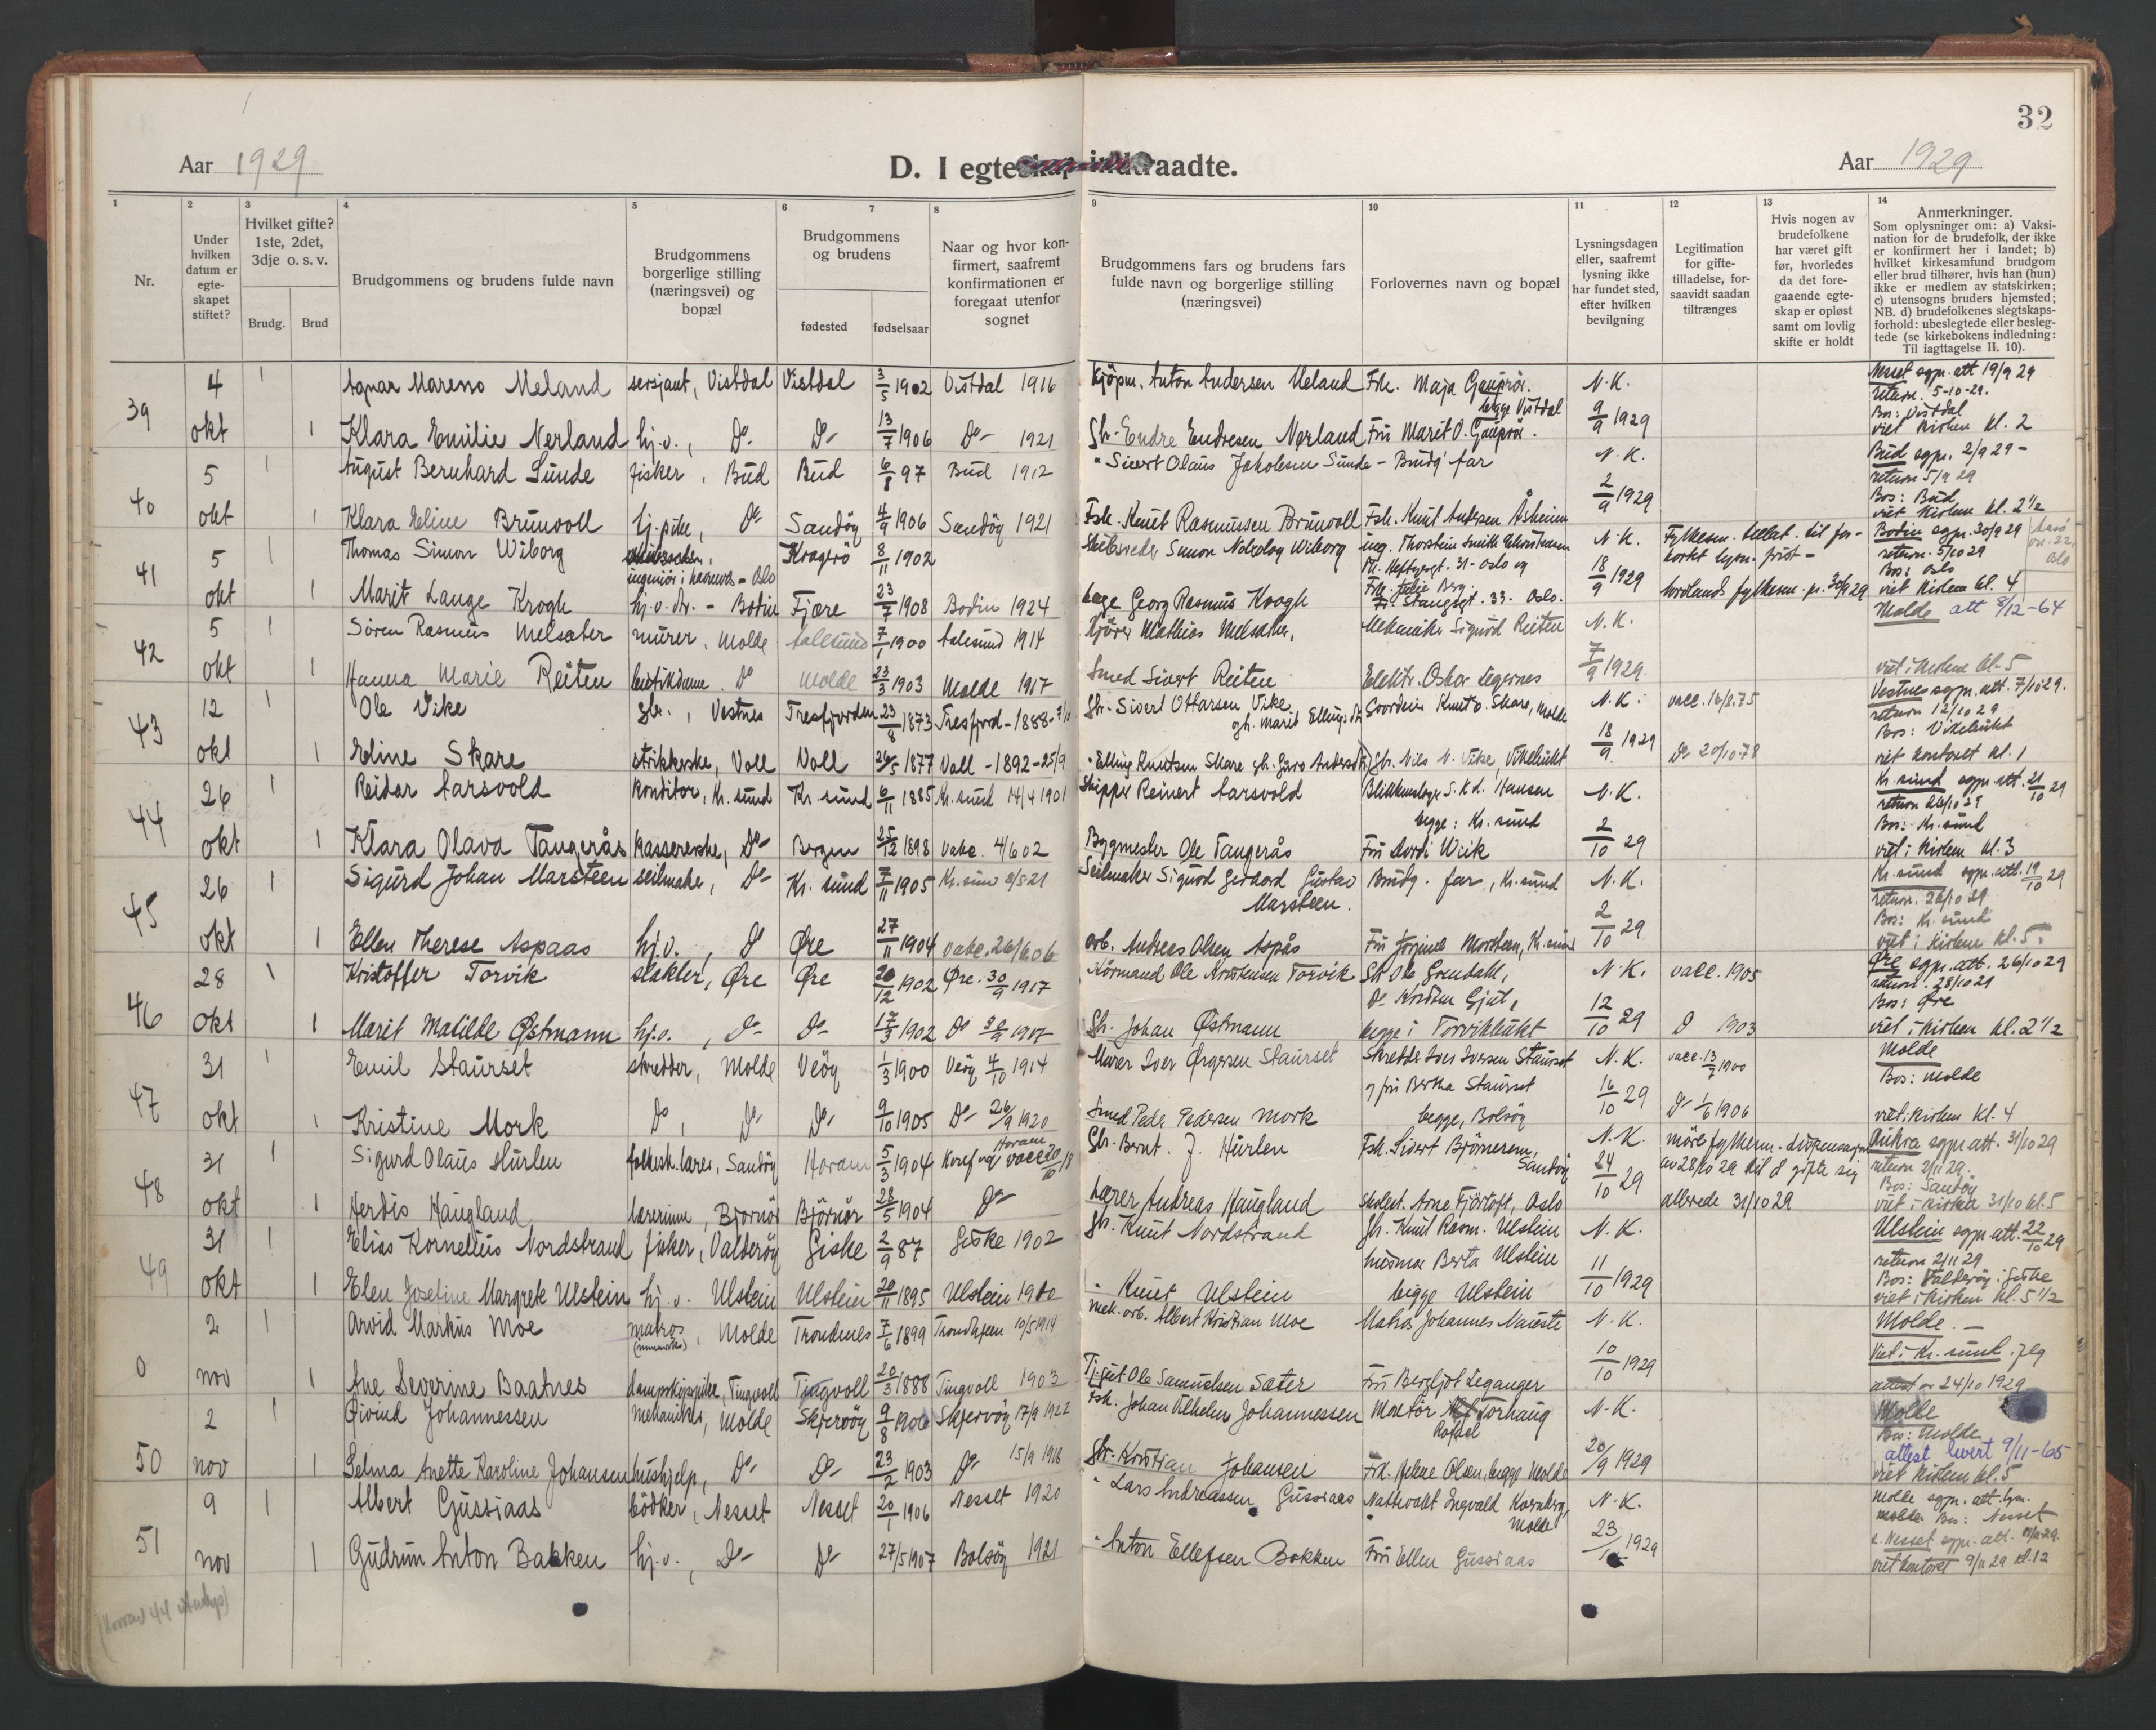 32
Aar 1929
D. I egteskap indtraadte.
Aar 1929
1
2
3
4
5
6
7
8
9
10
11
12
13
14
Nr.
Under hvilken datum er egte-skapet stiftet?
Hvilket gifte? 1ste, 2det, 3dje o. s. v.
Brudg.
Brud
Brudgommens og brudens fulde navn
Brudgommens borgerlige stilling (næringsvei) og bopæl
Brudgommens og brudens
fødested
fødselsaar
Naar og hvor kon-firmert, saafremt konfirmationen er foregaat utenfor sognet
Brudgommens fars og brudens fars fulde navn og borgerlige stilling (næringsvei)
Forlovernes navn og bopæl
Lysningsdagen eller, saafremt lysning ikke har fundet sted, efter hvilken bevilgning
Legitimation for gifte-tilladelse, for-saavidt saadan tiltrænges
Hvis nogen av brudefolkene har været gift før, hvorledes da det fore-gaaende egte-skap er opløst samt om lovlig skifte er holdt
Anmerkninger.
Som oplysninger om: a) Vaksi-nation for de brudefolk, der ikke er konfirmert her i landet; b) hvilket kirkesamfund brudgom eller brud tilhører, hvis han (hun) ikke er medlem av statskirken; c) utensogns bruders hjemsted; NB. d) brudefolkenes slegtskaps-forhold: ubeslegtede eller besleg-tede (se kirkebokens indledning: Til iagttagelse II. 10).
39 4 1 Agnar Mareno Meland sersjant, Vistdal Vistdal 3/5 1902 Vistdal 1916 Kjöpm. Anton Andersen Meland Frk. Maja Gauprör. N.K. Nesset sogn. att 19/9 29
begge Vistdal return. 5-10-29.
Bos: Vistdal
okt 1 Klara Emilie Nerland hj.v., Do Do 13/7 1906 Do 1921 Gbr. Endre Endresen Nerland Fru Marit O. Gauprör. 9/9 1929 viet Kirken kl. 2
40 5 1 August Bernhard Sunde fisker, Bud Bud 6/8 97 Bud 1912 " Sivert Olaus Jakobsen Sunde - Brudg' far N.K. Bud sogn. 2/9 29 -
return 5/9 29
Bos: Bud
okt 1 Klara Eline Brunvoll hj. pike, Do Sandöy 4/9 1906 Sandöy 1921 Fsk. Knut Rasmussen Brunvoll Fsk. Knut Andersen Åsheim 2/9 1929 viet Kirken kl. 2 1/2
41 5 1 Thomas Simon Wiborg Kragerö 8/11 1902 Skibsreder Simon Wiborg ing. Thorstein Smith N.K. Fylkesm. tillat. til for- Bodin sogn. 30/9 29
ingeniör i - Oslo 31 - Oslo og kortet lysn. frist - return. 5/10 29
Bos: Oslo
okt 1 Marit Lange Krogh hj.v.dr. - Bodin Fjære 23/7 1908 Bodin 1924 læge Georg Rasmus Krogh Frk. Julie Berg. 33. Oslo. 18/9 1929 Nordlands fylkesm. pr. 30/9 29 viet Kirken kl. 4
Molde att 8/12-64
42 5 1 Sören Rasmus Melsæter murer, Molde Aalesund 7/1 1900 Aalesund 1914 Kjörer Mathias Melsæter, Mekaniker Sigurd Reiten N.K.
okt 1 Hanna Marie Reiten butikdame. Do Molde 23/3 1903 Molde 1917 Smed Sivert Reiten Elektr. Oskar Legernes 7/9 1929 viet i Kirken kl. 5
43 12 1 Ole Vike gbr., Vestnes Tresfjorden 23/8 1873 Tresfjord - 1888 - Gbr. Sivert Ottarsen Vike Gaardeier Knut O. Skare, Molde N.K. vacc. 16/8.75 Vestnes sogn. att. 7/10 29.
gh. Marit Ellings dt return 12/10 29
Bos: Vikebukt
okt 1 Eline Skare strikkerske, Voll Voll 26/5 1877 Voll - 1892 - 25/9 " Elling Knutsen Skare gh. Guro Anders dt Gbr. Nils N. Vike, Vikebukt 18/9 1929 Do 20/10.78 viet kontoret kl. 1
44 26 1 Reidar Aarsvold Konditor, Kr. sund Kr. sund 6/11 1885 Kr. sund 14/4 1901 Skipper Reinert Aarsvold Blikkenslager S. K. d. Hansen N.K. Kr. sund sogn. att. 21/10 29
begge: Kr. sund return 26/10 29
Bos: Kr. sund
okt 1 Klara Olava Tangerås Kassererske, Do Bergen 25/12 1898 vakc. 4/6 02 Bygmester Ole Tangerås Fru Dordi Wiik 2/10 29 viet i Kirken kl. 3
45 26 1 Sigurd Johan Marsteen seilmaker, Do Kr. sund 7/11 1905 Kr. sund 8/5 21 Seilmaker Sigurd Gerhard Gustav Marsteen. Brudg. far, Kr. sund N.K. Kr. sund sogn. att. 19/10 29
return. 26/10 29
Bos: Kr. sund
okt 1 Ellen Therese Aspaas hj.v., Do Øre 27/11 1904 vakc. 26/6.06 arb. Andreas Olsen Aspås Fru Jörgine Marsteen, Kr. sund 2/10 29 viet i Kirken kl. 5.
46 28 1 Kristoffer Torvik slakter, Øre Øre 20/12 1902 Øre. 30/9 1917 Ole Kristensen Torvik Gbr. Ole Grendahl, N.K. vacc. 1905 Øre sogn. att. 26/10 29
return. 28/10 29
Bos: Øre
okt 1 Marit Matilde Østmann hj.v., Do Do 17/3 1902 Do Gbr. Johan Østmann begge i Torvikbukt 12/10 29 Do 1903 viet i Kirken kl. 2 1/2
47 31 1 Emil Staurset skredder, Molde Veöy 1/3 1900 Veöy 4/10 1914 Murer Iver Ørgersen Staurset Skredder Iver Iversen Staurset N.K. vacc. 13/7 1900 Molde
og fru Berta Staurset Bos: Molde
okt 1 Kristine Mork Do, Do Do 9/10 1905 Do 26/9 1920 Smed Peder Pedersen Mork begge, Bolsöy 16/10 29 Do 1/6 1906 viet i Kirken kl. 4
48 31 1 Sigurd Olaus Hurlen folkesk. lærer, Sandöy Haram 5/3 1904 Haram Gbr. Bernt. J. Hurlen Fsk. Sivert Björnerem, Sandöy N.K. Möre fylkesm. dispensasjon Aukra sogn att. 31/10 29
av 28/10 29 til å gifte sig return 2/11 29.
Bos: Sandöy
okt 1 Herdis Haugland lærerinne, Bjørnör Björnör 28/5 1904 Do Lærer Andreas Haugland Arne Fjörtoft, Oslo 24/10 29 allerede 31/10 29 viet i Kirken 31/10 kl. 5
49 31 1 Elias Kornelius Nordstrand fisker, Valderöy Giske 2/9 87 Giske 1902 Gbr. Knut Nordstrand Gbr. Knut Rasm. Ulstein N.K. Ulstein sogn att. 22/10 29
husmor Berta Ulstein return 2/11 29
Bos: Valderöy i Giske
okt 1 Elen Josefine Margrete Ulstein hj.v. Ulstein Ulstein 20/11 1895 Ulstein 1910 " Knut Ulstein begge Ulstein 11/10 1929 viet i Kirken kl. 5 1/2
0 2 1 Arvid Markus Moe matros, Molde Trondenes 7/6 1899 Trondhjem 10/5 1914 mek. arb. Albert Kristian Moe Matros Johannes Naieste N.K. Molde. —
Viet i Kr. sund.
nov 1 Ane Severine Baatnes dampskipspike, Tingvoll Tingvoll 20/3 1888 Tingvoll 1903 Ole Samuelsen Sæter Fru Bergljot Leganger 10/10 1929 attest av 24/10 1929
50 2 1 Öivind Johannessen Mekaniker, Molde Skjervöy 9/8 1906 Skjervöy 17/9 1922 Fsk. Johan Vilhelm Johannessen Montör Torhaug N.K. Molde
Rafael Bos: Molde
attest levert 9/11-65
nov 1 Selma Anette Karoline Johansen hushjelp, Do Do 23/2 1903 Do 15/9 1918 Gbr. Kristian Johansen Frk. Helene Olsen, begge Molde 20/9 1929 viet Kirken kl. 5
51 9 1 Albert Gussiaas bödker, Nesset Nesset 20/1 1906 Nesset 1920 " Lars Andreassen Gussiaas Nattevakt Ingvald Kornberg, Molde N.K. Molde sogn. att. lysn.
Molde Bos: Nesset
nov 1 Gudrun Anton Bakken hj.v., Do Do 27/5 1907 Bolsöy 1921 " Anton Ellefsen Bakken Fru Ellen Gussiaas 23/10 1929 Nesset sogn. att.
viet kontoret 9/11 29 kl. 12
(Hvorav 44 utenbys)